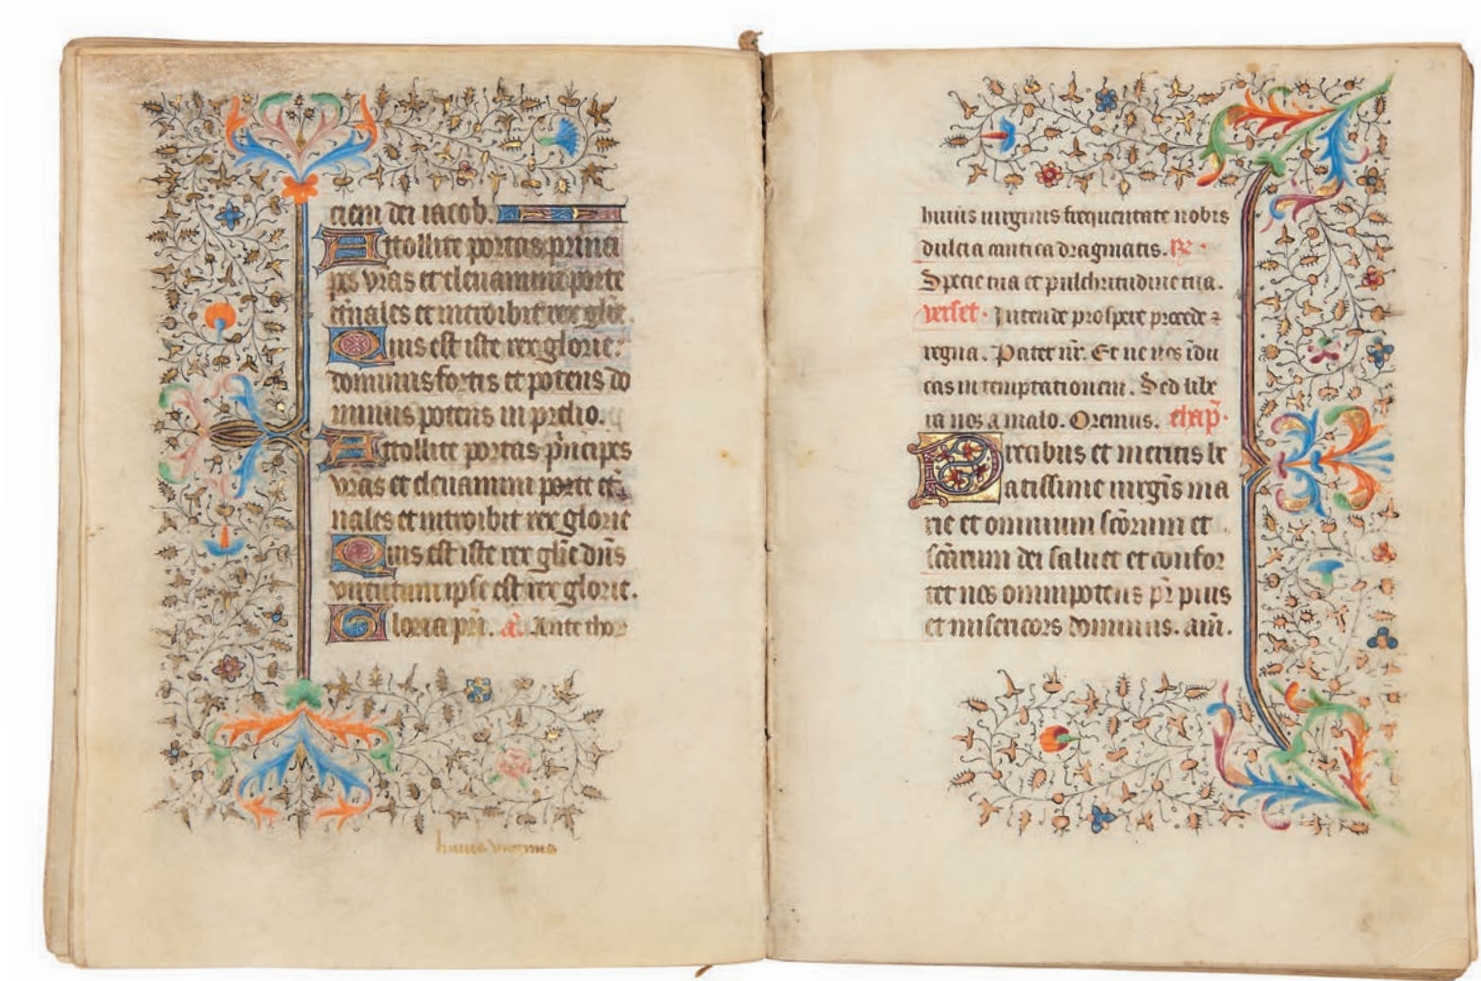 ciem dei iacob.
Attollite portas princi
pes vr̃as et eleuamini porte
et̃nales et introibit rex glìe.
Quis est iste rex glorie:
dominus fortis et potens do
minus potens in prelio.
Attollite portas p̃ncipes
vr̃as et eleuamini porte et̃
nales et introibit rex glorie
Quis est iste rex glìe dñs
uirtutum ipse est rex glorie.
Gloria pr̃i. a. Ante tho
huius virginis
huius uirginis frequentate nobis
dulcia cantica dragmatis. R̃.
Specie tua et pulchritudine tua.
verset. Intende prospere procede ⁊
regna. Pater nr̃. Et ne nos ĩdu
cas in temptationem. Sed libe
ra nos a malo. Oremus. chap̃.
Precibus et meritis be
atissime uirgĩs ma
rie et omnium sc̃orum et
sc̃arum dei saluet et confor
tet nos omnipotens pr̃ pius
et misericors dominus. am̃.